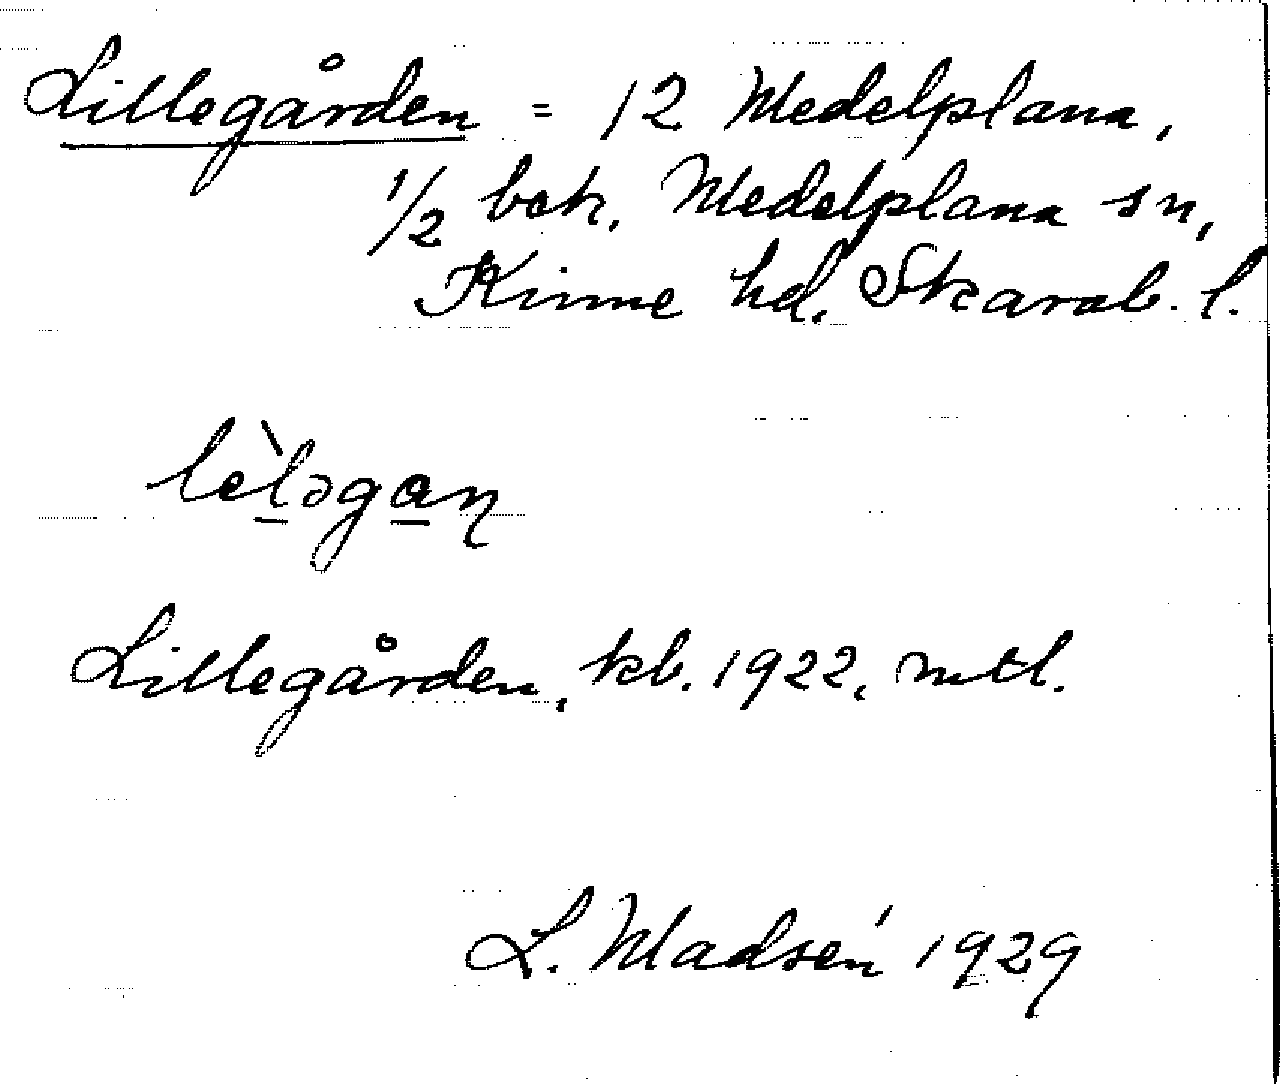 Lillegården = 12 Medelplana,
1/2 bok. Medelplana sn,
Kinne hd. Skarab. l.
lèləgaɳ
Lillegården, kb. 1922, mtl.
L. Madsén 1929